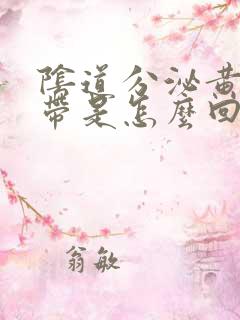 陰道分泌黃
帶是怎麼回
翁敏